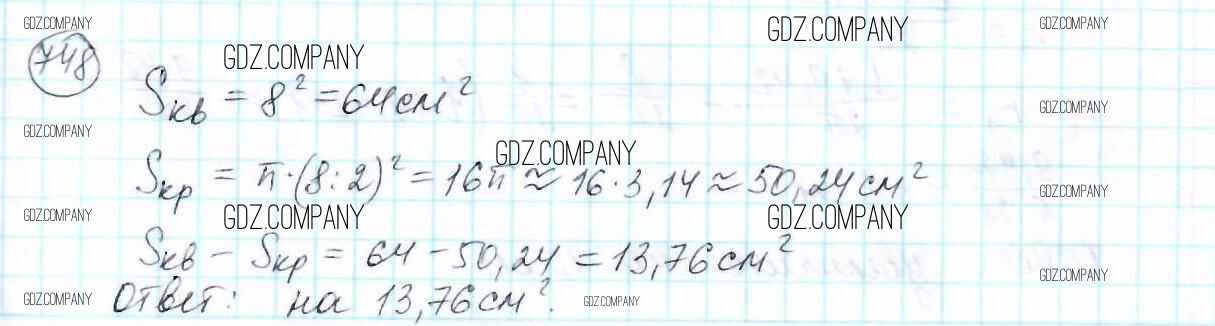 GDZ.COMPANY GDZ.COMPANY GDZ.COMPANY
748 GDZ.COMPANY
Sкв = 8² = 64 см²
GDZ.COMPANY GDZ.COMPANY
GDZ.COMPANY
Sкр = π·(8:2)² = 16π ≈ 16·3,14 ≈ 50,24 см²
GDZ.COMPANY
GDZ.COMPANY GDZ.COMPANY GDZ.COMPANY
Sкв - Sкр = 64 - 50,24 = 13,76 см²
GDZ.COMPANY
GDZ.COMPANY Ответ: на 13,76 см². GDZ.COMPANY GDZ.COMPANY